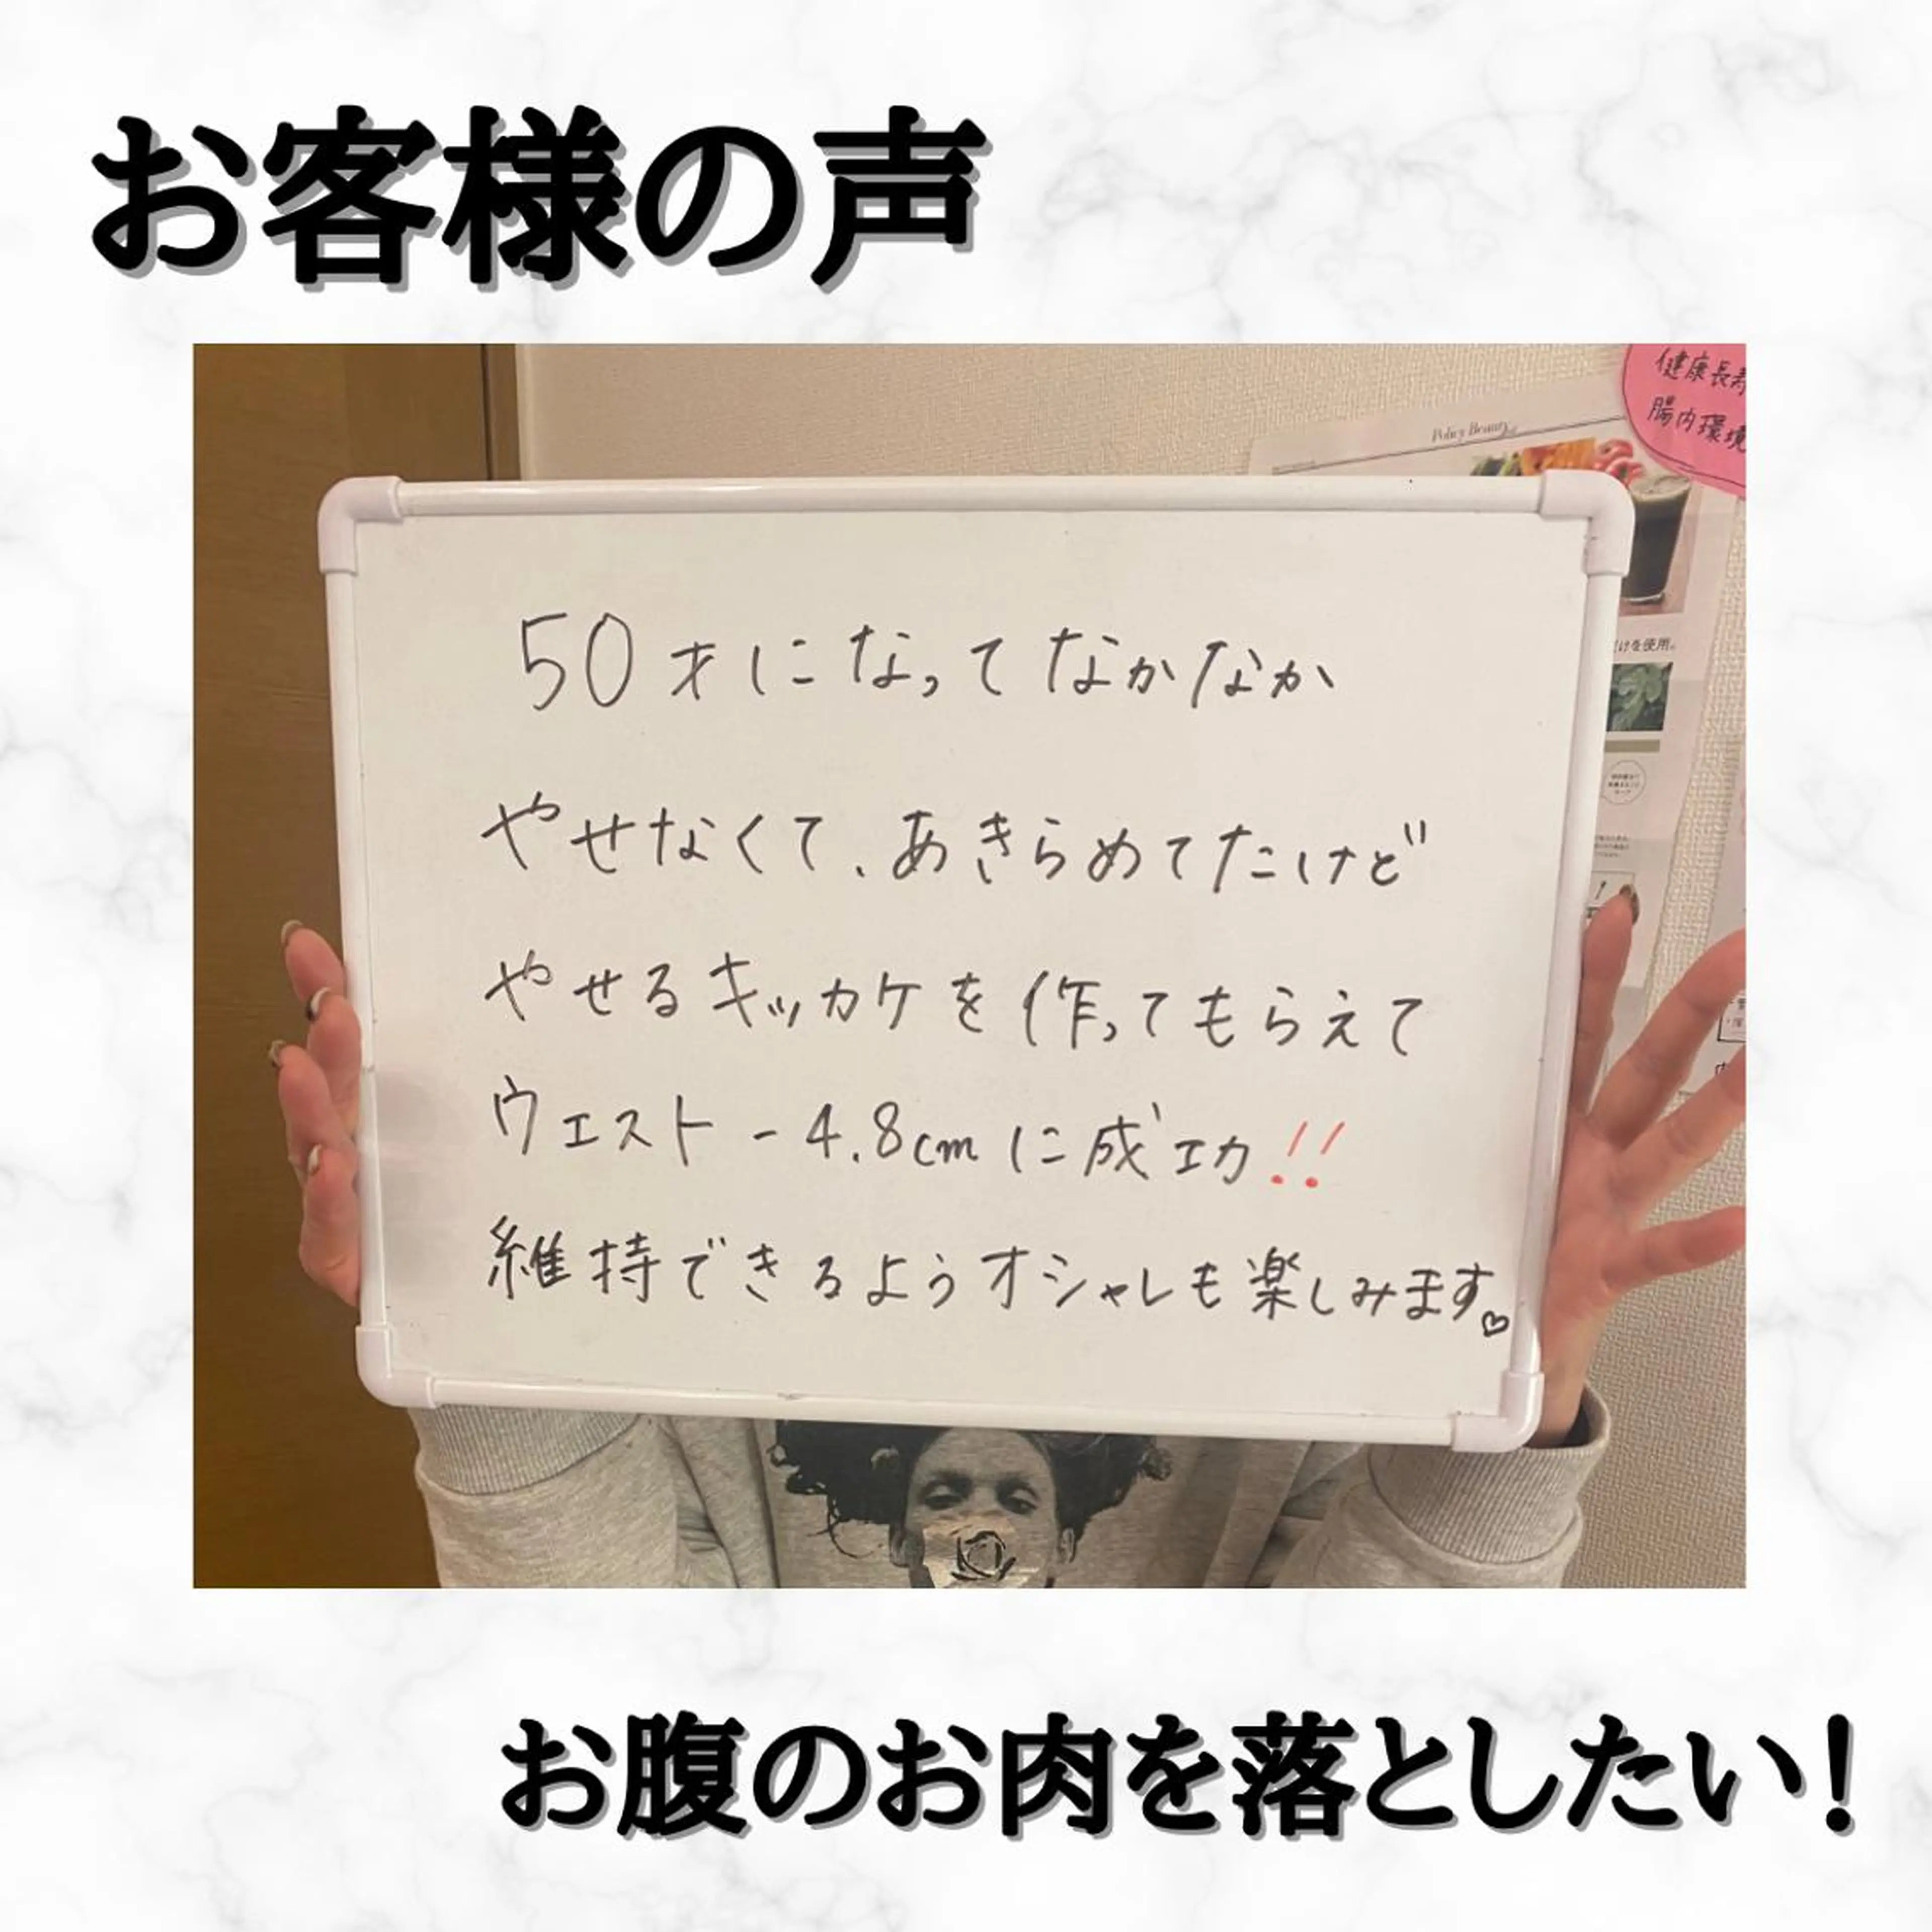 お客様の声
健康長寿
腸内環境
Policy Beauty
けを使用。
50才になってなかなか
やせなくて、あきらめてたけど
やせるキッカケを作ってもらえて
ウエスト-4.8cmに成功!!
維持できるようオシャレも楽しみます♡
お腹のお肉を落としたい!